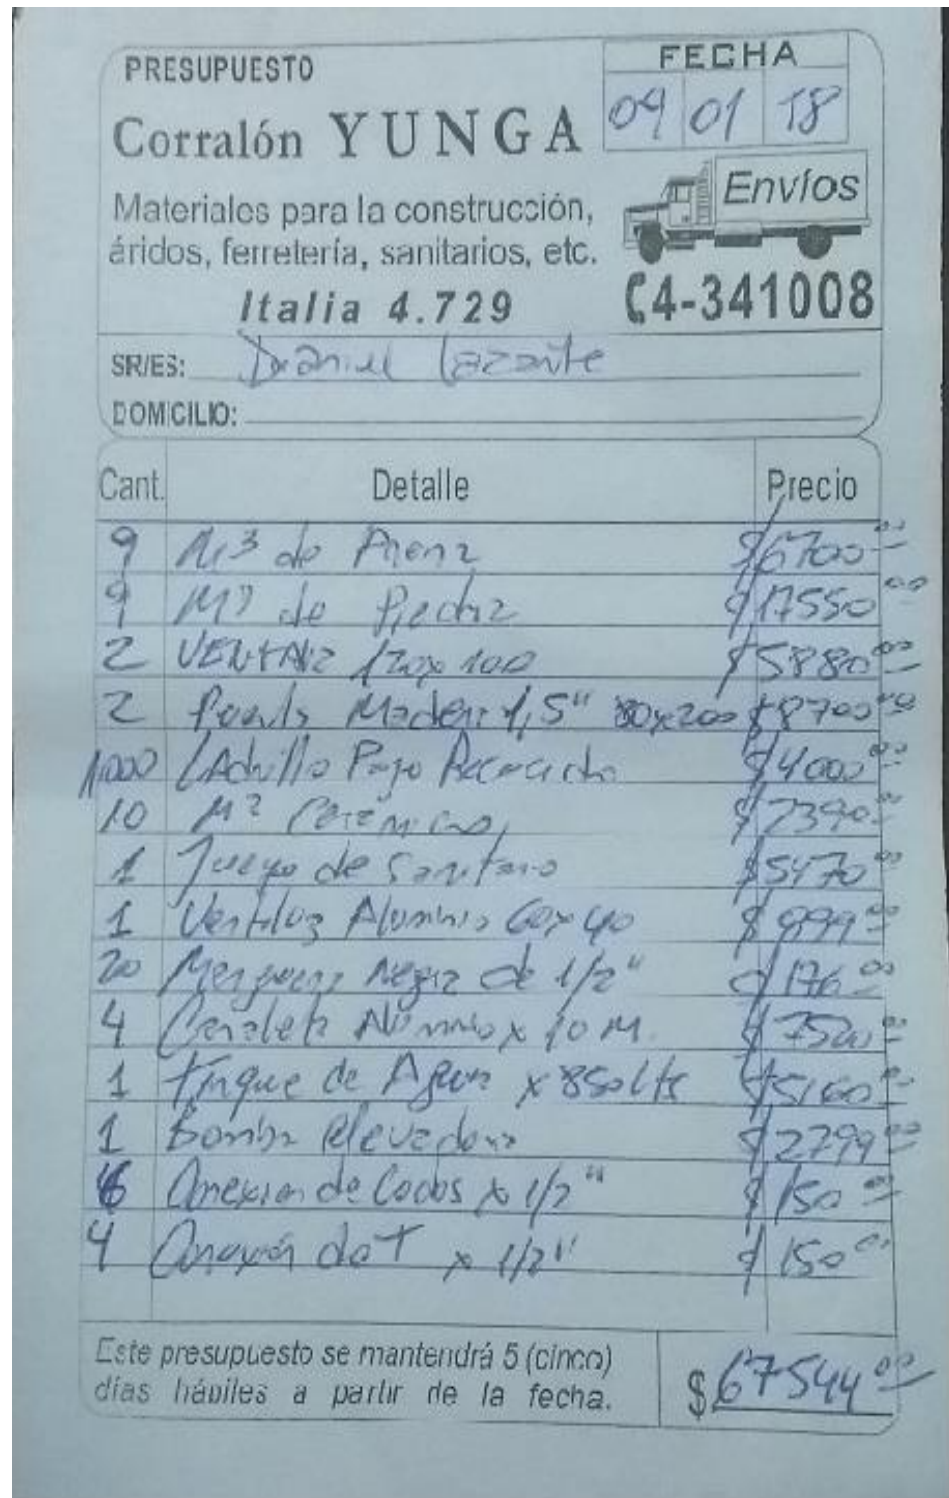 PRESUPUESTO
FECHA
09 01 18
Corralón YUNGA
Envíos
Materiales para la construcción,
áridos, ferretería, sanitarios, etc.
Italia 4.729
4-341008
SR/ES: Daniel
DOMICILIO:
Cant. Detalle Precio
9 M3 de Arena $6700 00
9 M3 de Piedra $17550 00
2 VENTANA 120x100 $5880 00
2 Madera 1,5" 80x200 $8700 00
1000 LAdrillo $4000 00
10 M2 Cerámicos $2390 00
1 Juego de Sanitario $5470 00
1 Ventiluz Aluminio 60x40 $999 00
20 Negra de 1/2" $176 00
4 Canaleta x 10 M. $7520 00
1 Tanque de Agua x 850 Lts $5160 00
1 Bomba elevadora $2799 00
6 Conexion de Codos x 1/2" $150 00
4 Conexión de T x 1/2" $150 00
Este presupuesto se mantendrá 5 (cinco)
días hábiles a partir de la fecha.
$ 67544 00